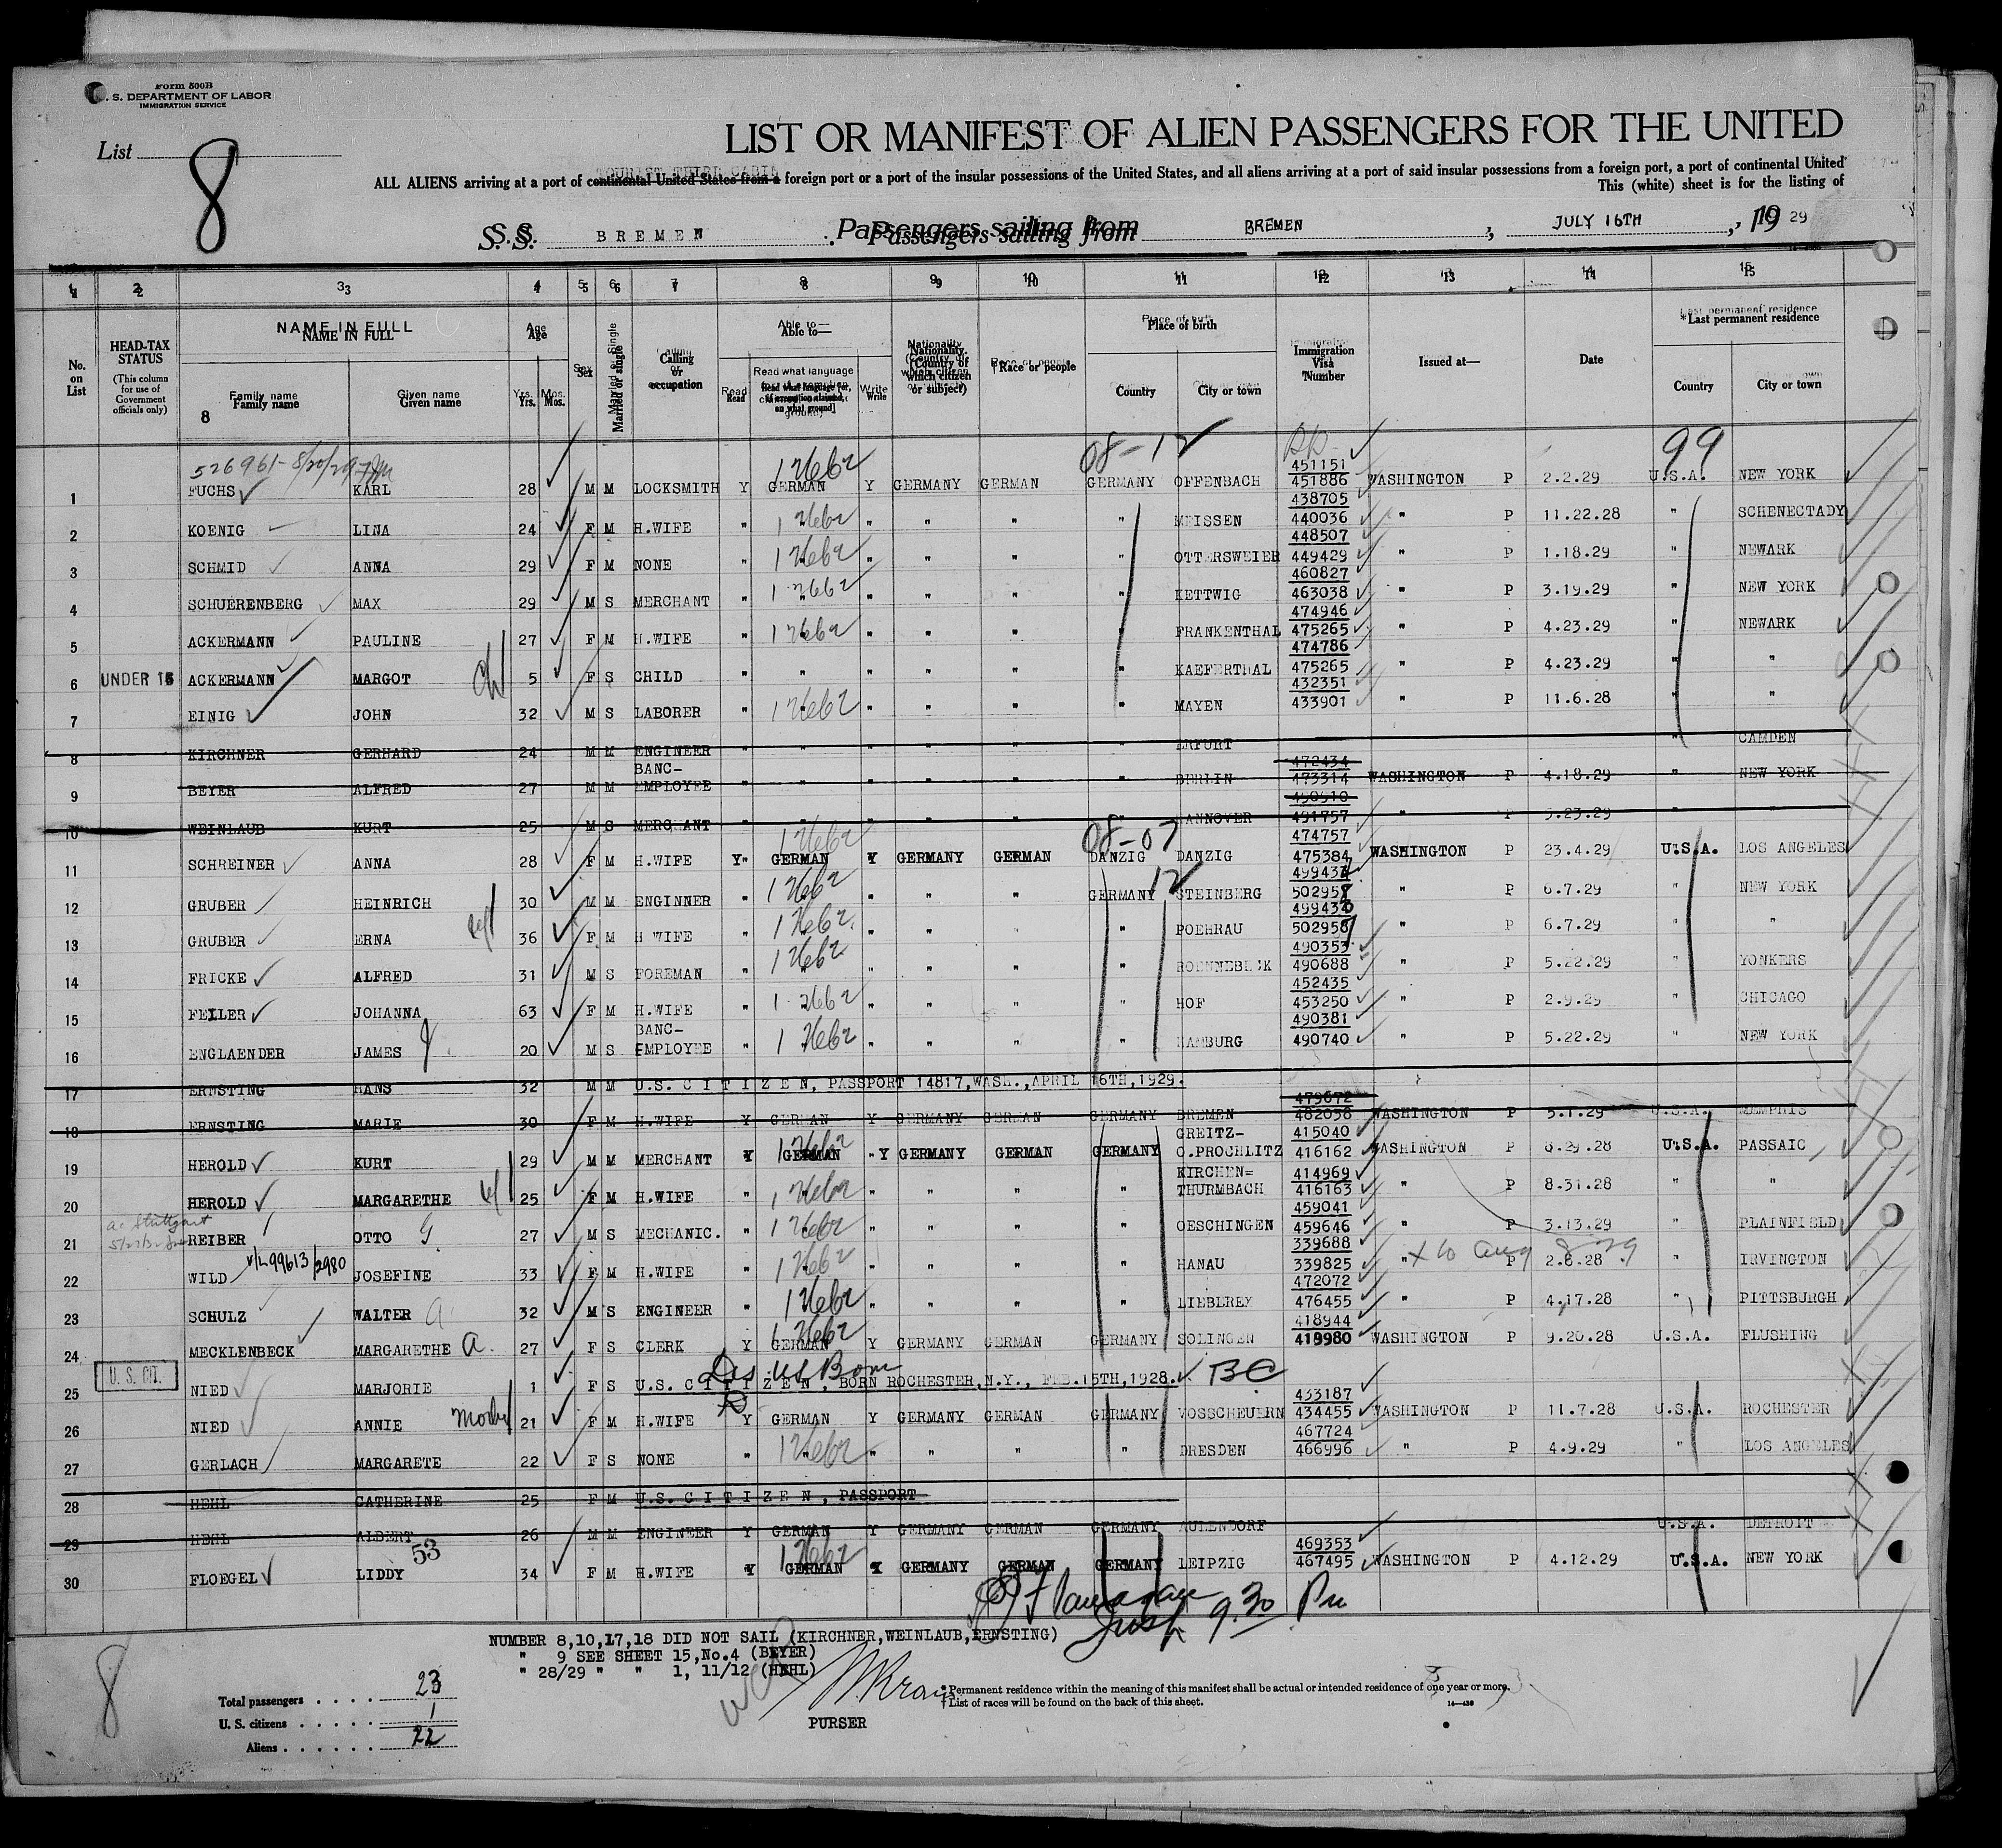 Form 500B
U. S. DEPARTMENT OF LABOR
IMMIGRATION SERVICE
List 8
LIST OR MANIFEST OF ALIEN PASSENGERS FOR THE UNITED
TOURIST THIRD CABIN
ALL ALIENS arriving at a port of continental United States from a foreign port or a port of the insular possessions of the United States, and all aliens arriving at a port of said insular possessions from a foreign port, a port of continental United
This (white) sheet is for the listing of
S. S. BREMEN Passengers sailing from BREMEN, JULY 16TH, 19 29
1 2 3 4 5 6 7 8 9 10 11 12 13 14 15
No. on List
HEAD-TAX STATUS (This column for use of Government officials only)
NAME IN FULL
Family name Given name
8
Age Yrs. Mos.
Sex
Married or single
Calling or occupation
Able to— Read Read what language [or, if exemption claimed, on what ground] Write
Nationality. (Country of which citizen or subject)
Race or people
Place of birth Country City or town
Immigration Visa Number
Issued at—
Date
*Last permanent residence Country City or town
526961-8/20/29
08-12 99
1 FUCHS KARL 28 M M LOCKSMITH Y GERMAN Y GERMANY GERMAN GERMANY OFFENBACH 451151 451886 WASHINGTON P 2.2.29 U.S.A. NEW YORK
2 KOENIG LINA 24 F M H.WIFE " " " " " " MEISSEN 438705 440036 " P 11.22.28 " SCHENECTADY
3 SCHMID ANNA 29 F M NONE " " " " " " OTTERSWEIER 448507 449429 " P 1.18.29 " NEWARK
4 SCHUERENBERG MAX 29 M S MERCHANT " " " " " " KETTWIG 460827 463038 " P 3.19.29 " NEW YORK
5 ACKERMANN PAULINE 27 F M H.WIFE " " " " " " FRANKENTHAL 474946 475265 " P 4.23.29 " NEWARK
6 UNDER 16 ACKERMANN MARGOT ch/ 5 F S CHILD " " " " " " KAEFERTHAL 474786 475265 " P 4.23.29 " "
7 EINIG JOHN 32 M S LABORER " " " " " " MAYEN 432351 433901 " P 11.6.28 " "
8 KIRCHNER GERHARD 24 M M ENGINEER " " " " " " ERFURT " CAMDEN
9 BEYER ALFRED 27 M M BANC-EMPLOYEE " " " " " " BERLIN 472434 473314 WASHINGTON P 4.18.29 " NEW YORK
10 WEINLAUB KURT 25 M S MERCHANT " " " " " " HANNOVER 491757 " P 5.23.29 " "
08-07
11 SCHREINER ANNA 28 F M H.WIFE Y GERMAN Y GERMANY GERMAN DANZIG DANZIG 474757 475384 WASHINGTON P 23.4.29 U.S.A. LOS ANGELES
12 GRUBER HEINRICH 30 M M ENGINNER " " " " " GERMANY 12 STEINBERG 502958 " P 6.7.29 " NEW YORK
13 GRUBER ERNA 36 F M H WIFE " " " " " " POEHRAU " P 6.7.29 " "
14 FRICKE ALFRED 31 M S FOREMAN " " " " " " 490353 490688 " P 5.22.29 " YONKERS
15 FELLER JOHANNA 63 F M H.WIFE " " " " " " HOF 452435 453250 " P 2.9.29 " CHICAGO
16 ENGLAENDER JAMES 20 M S BANC-EMPLOYEE " " " " " " HAMBURG 490381 490740 " P 5.22.29 " NEW YORK
17 ERNSTING HANS 32 M M U.S. CITIZEN, PASSPORT 14817,WASH.,APRIL 16TH,1929.
18 ERNSTING MARIE 30 F M H.WIFE Y GERMAN Y GERMANY GERMAN GERMANY BREMEN 479672 482038 WASHINGTON P 5.1.29 U.S.A. MEMPHIS
19 HEROLD KURT 29 M M MERCHANT Y GERMAN Y GERMANY GERMAN GERMANY GREITZ-O.PROCHLITZ 415040 416162 WASHINGTON P 8.29.28 U.S.A. PASSAIC
20 HEROLD MARGARETHE 25 F M H.WIFE " " " " " " KIRCHEN=THURMBACH 414969 416163 " P 8.31.28 " "
21 REIBER OTTO 27 M S MECHANIC. " " " " " " OESCHINGEN 459041 459646 " P 3.13.29 " PLAINFIELD
22 WILD V/L 99613/2980 JOSEFINE 33 F M H.WIFE " " " " " " HANAU 339688 339825 " P 2.8.28 " IRVINGTON
23 SCHULZ WALTER 32 M S ENGINEER " " " " " " LIEBLREY 472072 476455 " P 4.17.28 " PITTSBURGH
24 MECKLENBECK MARGARETHE a. 27 F S CLERK Y GERMAN Y GERMANY GERMAN GERMANY SOLINGEN 418944 419980 WASHINGTON P 9.20.28 U.S.A. FLUSHING
25 U. S. CIT. NIED MARJORIE 1 F S U.S. CITIZEN, BORN ROCHESTER,N.Y., FEB.15TH,1928. BC
26 NIED ANNIE 21 F M H.WIFE Y GERMAN Y GERMANY GERMAN GERMANY VOSSCHEUERN 433187 434455 WASHINGTON P 11.7.28 U.S.A. ROCHESTER
27 GERLACH MARGARETE 22 F S NONE " " " " " " DRESDEN 467724 466996 " P 4.9.29 " LOS ANGELES
28 HEHL CATHERINE 25 F M U.S. CITIZEN, PASSPORT
29 HEHL ALBERT 26 M M ENGINEER Y GERMAN Y GERMANY GERMAN GERMANY AULENDORF U.S.A. DETROIT
53
30 FLOEGEL LIDDY 34 F M H.WIFE Y GERMAN Y GERMANY GERMAN GERMANY LEIPZIG 469353 467495 WASHINGTON P 4.12.29 U.S.A. NEW YORK
Insp. 9.30 Pm
NUMBER 8,10,17,18 DID NOT SAIL (KIRCHNER,WEINLAUB,ERNSTING)
" 9 SEE SHEET 15,No.4 (BEYER)
" 28/29 " " 1, 11/12 (HEHL)
8
Total passengers . . . . 23
U. S. citizens . . . . . 1
Aliens . . . . . . 22
PURSER
* Permanent residence within the meaning of this manifest shall be actual or intended residence of one year or more.
† List of races will be found on the back of this sheet.
14—430